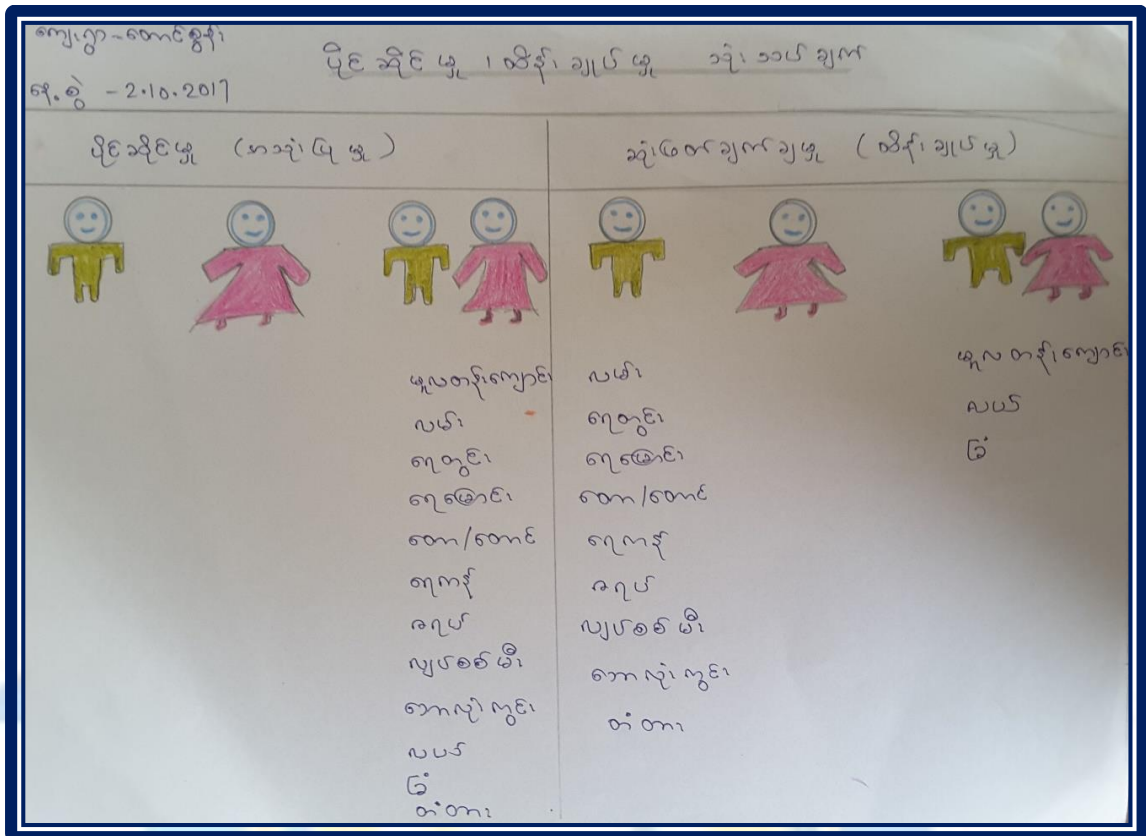 ကျေးရွာ-တောင်စွန်း
ပိုင်ဆိုင်မှု ၊ ထိန်းချုပ်မှု သုံးသပ်ချက်
နေ့စွဲ - 2.10.2017
ပိုင်ဆိုင်မှု (အသုံးပြုမှု)
ဆုံးဖြတ်ချက်ချမှု (ထိန်းချုပ်မှု)
မူလတန်းကျောင်း
လမ်း
ရေတွင်း
ရေမြောင်း
တော/တောင်
ရေကန်
ဇရပ်
လျှပ်စစ်မီး
ဘောလုံးကွင်း
လယ်
ခြံ
တံတား
လမ်း
ရေတွင်း
ရေမြောင်း
တော/တောင်
ရေကန်
ဇရပ်
လျှပ်စစ်မီး
ဘောလုံးကွင်း
တံတား
မူလတန်းကျောင်း
လယ်
ခြံ